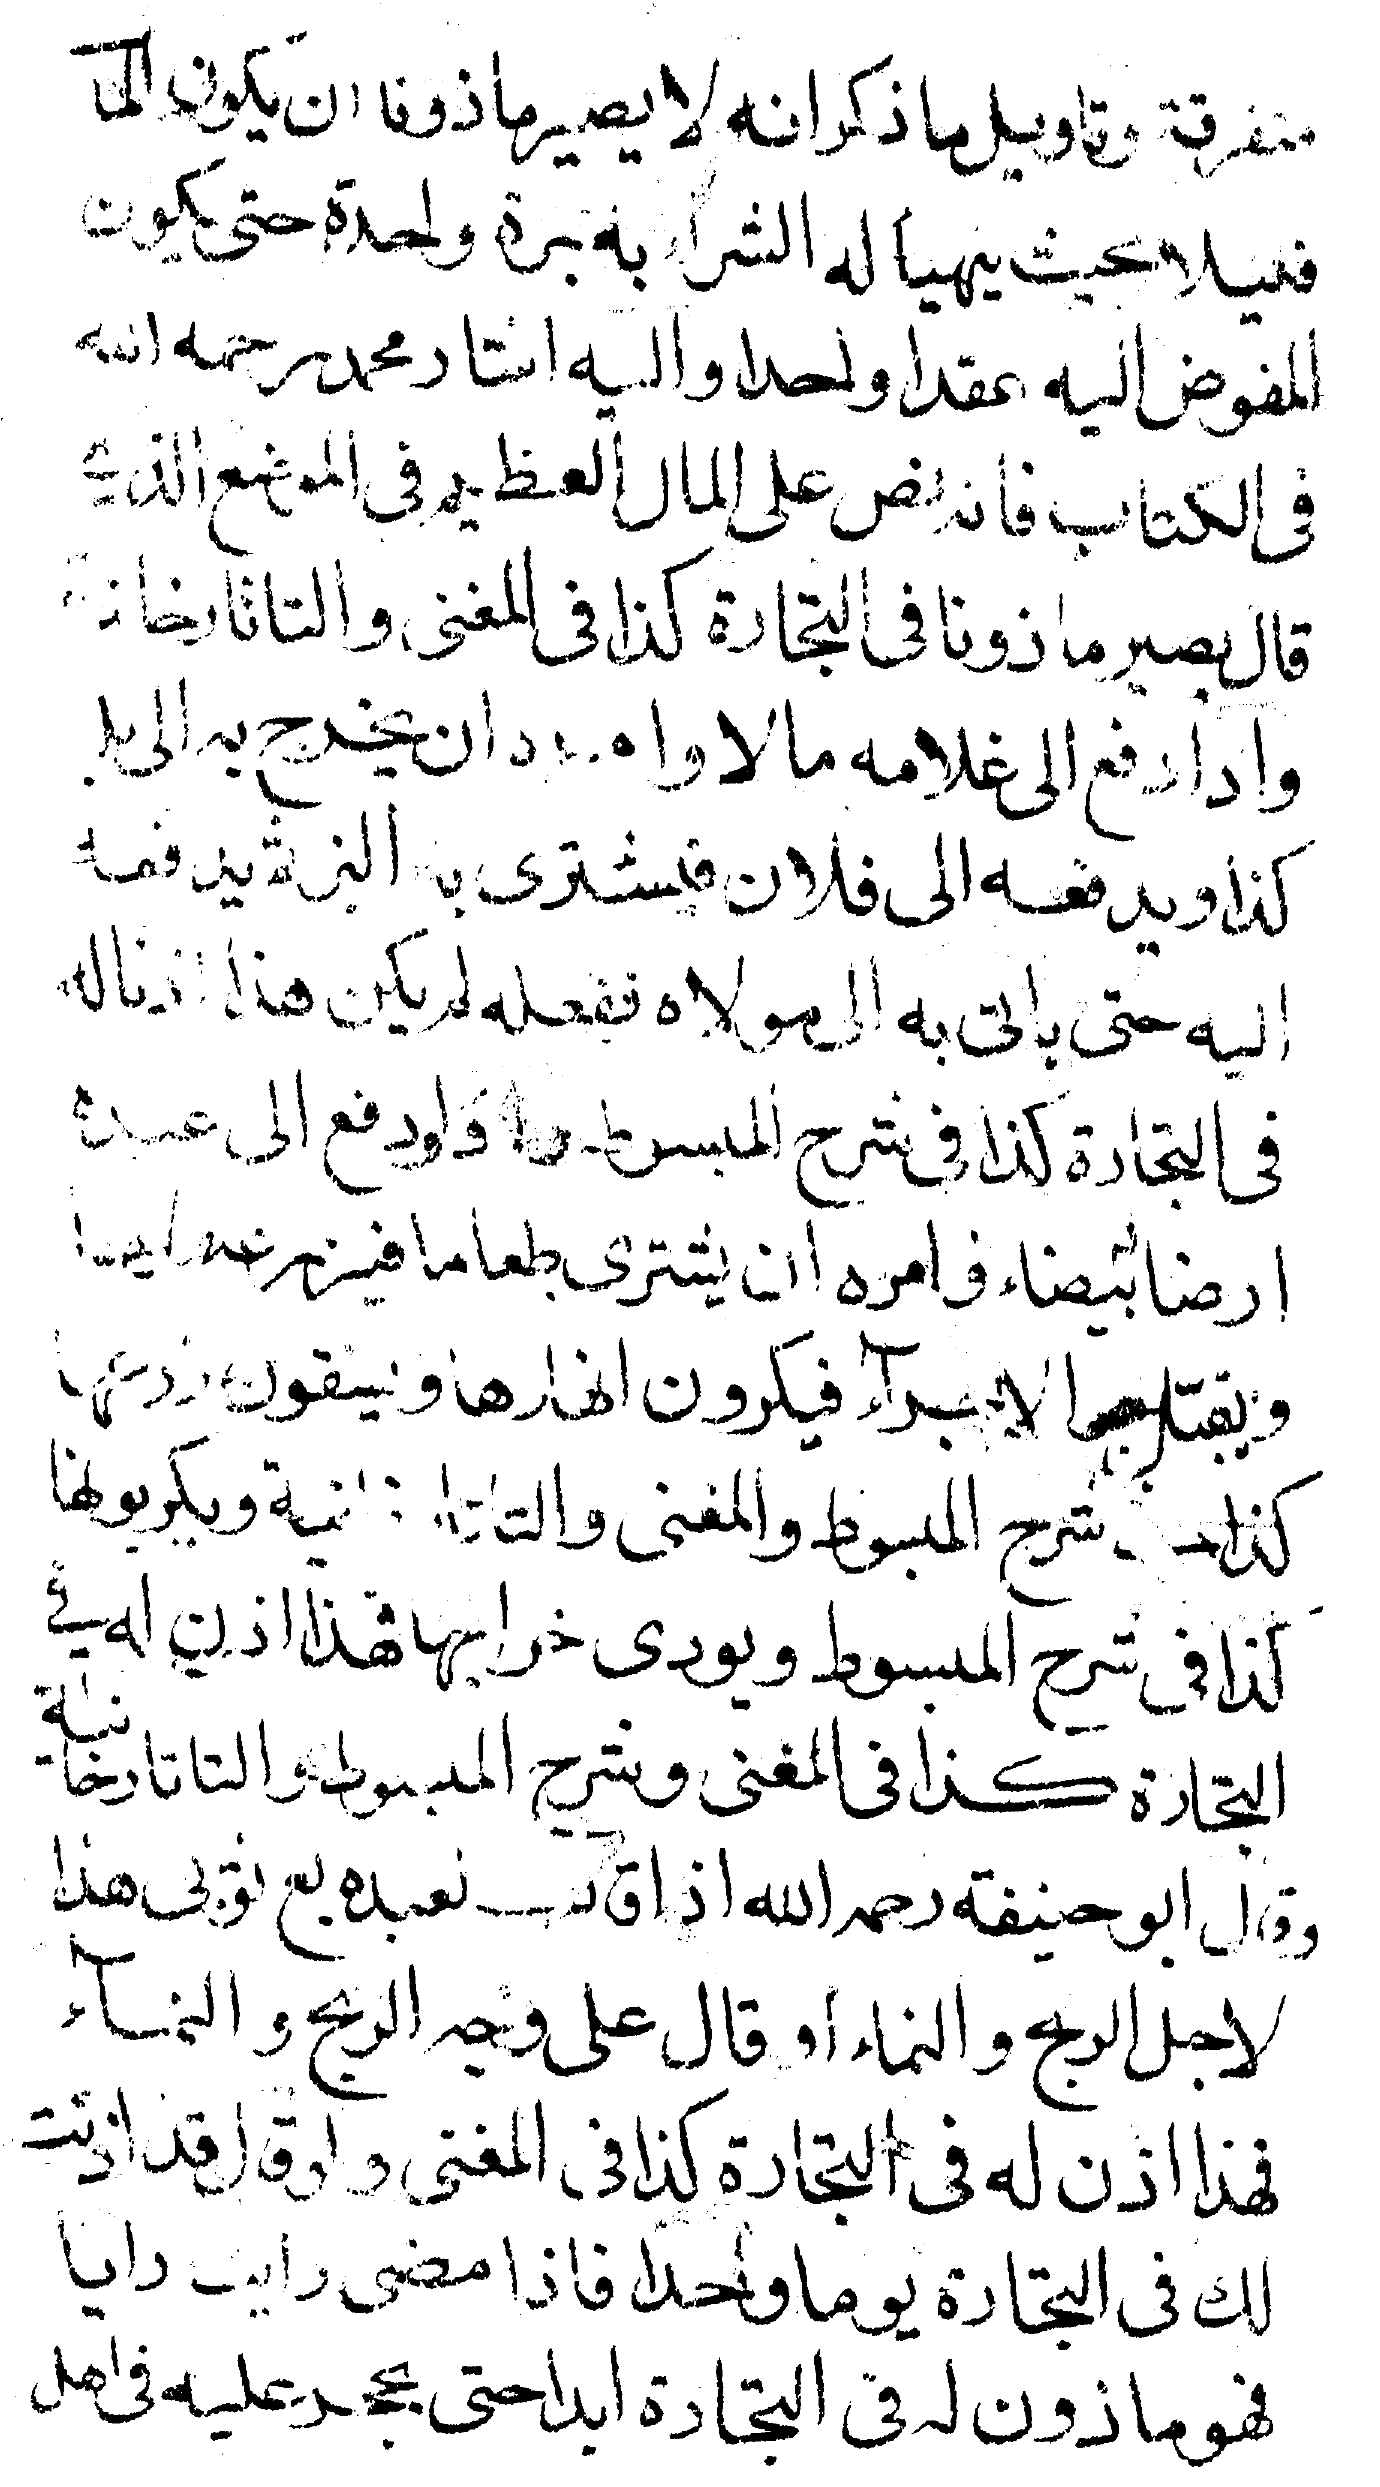 متفرقة وتاويل ما ذكر انه لا يصير ماذونا ان يكون المآ
قليلا بحيث يتهيأ له الشراء به بمرة واحدة حتى يكون
المفوض اليه عقدا واحدا واليه اشار محمد رحمه الله
فى الكتاب فانه نص على المال العظيم فى الموضع الذى
قال يصير ماذونا فى التجارة كذا فى المغنى والتاتارخانية
واذا دفع الى غلامه مالا وامره ان يخرج به الى بلد
كذا ويدفعه الى فلان فيشترى به البز ثم يدفعه
اليه حتى ياتى به الى مولاه ففعله لم يكن هذا اذنا له
فى التجارة كذا فى شرح المبسوط ولو دفع الى عبده
ارضا بيضاء وامره ان يشترى طعاما فيزرعه فيها
ويقتل الاجرآء فيكرون انهارها ويسقون زرعها
كذا شرح المبسوط والمغنى والتاتارخانية ويكربونها
كذا فى شرح المبسوط ويودى خراجها فهذا اذن له فى
التجارة كذا فى المغنى وشرح المبسوط والتاتارخانية
وقال ابو حنيفة رحمه الله اذا قال لعبده بع ثوبى هذا
لاجل الربح والنماء او قال على وجه الربح والنمآء
فهذا اذن له فى التجارة كذا فى المغنى ولو قال قد اذنت
لك فى التجارة يوما واحدا فاذا مضى رايت رايا
فهو ماذون له فى التجارة ابدا حتى يحجر عليه فى اهل